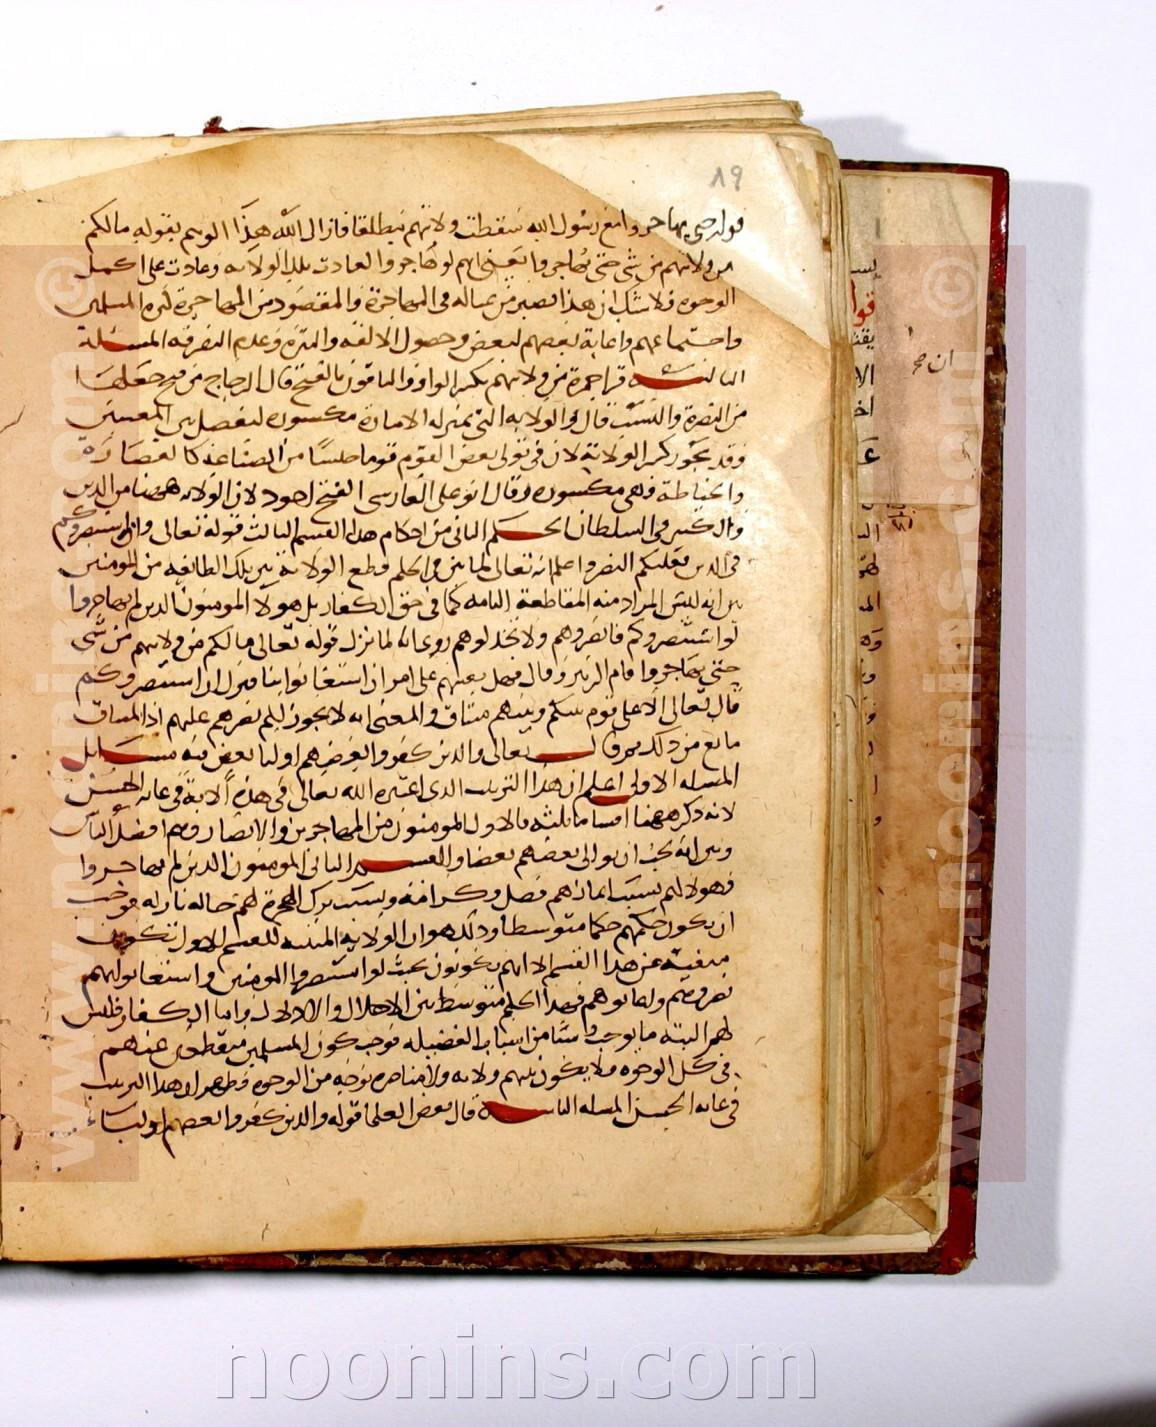 ٨٩
قوله حتى يهاجروا مع رسول الله سقطت ولايتهم مطلقا فازال الله هذا الوهم بقوله مالكم
من ولايتهم من شى حتى يهاجروا يعنى انهم لو هاجروا لعادت تلك الولاية وعادت على اكمل
الوجوه فلا شك ان هذا يصير مرغبا له فى المهاجرة والمقصود من المهاجرة كثرة المسلمين
واجتماعهم واعانة بعضهم لبعض وحصول الالفة والشوكة وعدم التفرقة المسئلة
الثالثة قرا حمزة من ولايتهم بكسر الواو والباقون بالفتح قال الزجاج من فتح جعلها
من النصرة والنسب قال والولاية التى بمنزلة الامارة مكسورة ليفصل بين المعنيين
وقد يجوز كسر الولاية لان فى تولى بعض القوم بعضا جنسا من الصناعة كالقصارة
والخياطة فهى مكسورة وقال ابو على الفارسى الفتح اجود لان الولاية ههنا من الدين
والكسر فى السلطان الحكم الثانى من احكام هذا القسم الثالث قوله تعالى وان استنصروكم
فى الدين فعليكم النصر واعلم انه تعالى لما بين فى الحكم قطع الولاية بين تلك الطائفة من المومنين
بين انه ليس المراد منه المقاطعة التامة كما فى حق الكفار بل هولا المومنون الذين لم يهاجروا
لو استنصروكم فانصروهم ولا تخذلوهم روى انه لما نزل قوله تعالى مالكم من ولايتهم من شى
حتى يهاجروا قام الزبير وقال فهل نعينهم على امر ان استعانوا بنا فنزل ان استنصروكم
قال تعالى الا على قوم بينكم وبينهم ميثاق والمعنى انه لا يجوز لكم نصرهم عليهم اذ الميثاق
مانع من ذلك ثم قال تعالى والذين كفروا بعضهم اوليا بعض فيه مسائل
المسئلة الاولى اعلم ان هذا الترتيب الذى اعتبره الله تعالى فى هذه الاية فى غاية الحسن
لانه ذكر ههنا اقساما ثلثة فالاول المومنون من المهاجرين والانصار وهم افضل الناس
وبين انه يجب ان يوالى بعضهم بعضا والقسم الثانى المومنون الذين لم يهاجروا
فهولا لهم بسبب ايمانهم فضل وكرامة وبسبب ترك الهجرة لهم حالة نازلة فوجب
ان يكون حكمهم حكما متوسطا وذلك هو ان الولاية المثبتة للقسم الاول تكون
منفية عن هذا القسم الا انهم يكونون بحيث لو استنصروا المومنين واستعانوا بهم
نصروهم واعانوهم فهذا الحكم متوسط بين الاجلال والاذلال واما الكفار فليس
لهم البتة ما يوجب شيا من اسباب الفضيلة فوجب كون المسلمين منقطعين عنهم
فى كل الوجوه فلا يكون بينهم ولاية ولا مناصرة بوجه من الوجوه فظهر ان هذا الترتيب
فى غاية الحسن المسئلة الثانية قال بعض العلما قوله والذين كفروا بعضهم اولياء
www.noonins.com ©
www.noonins.com ©
noonins.com